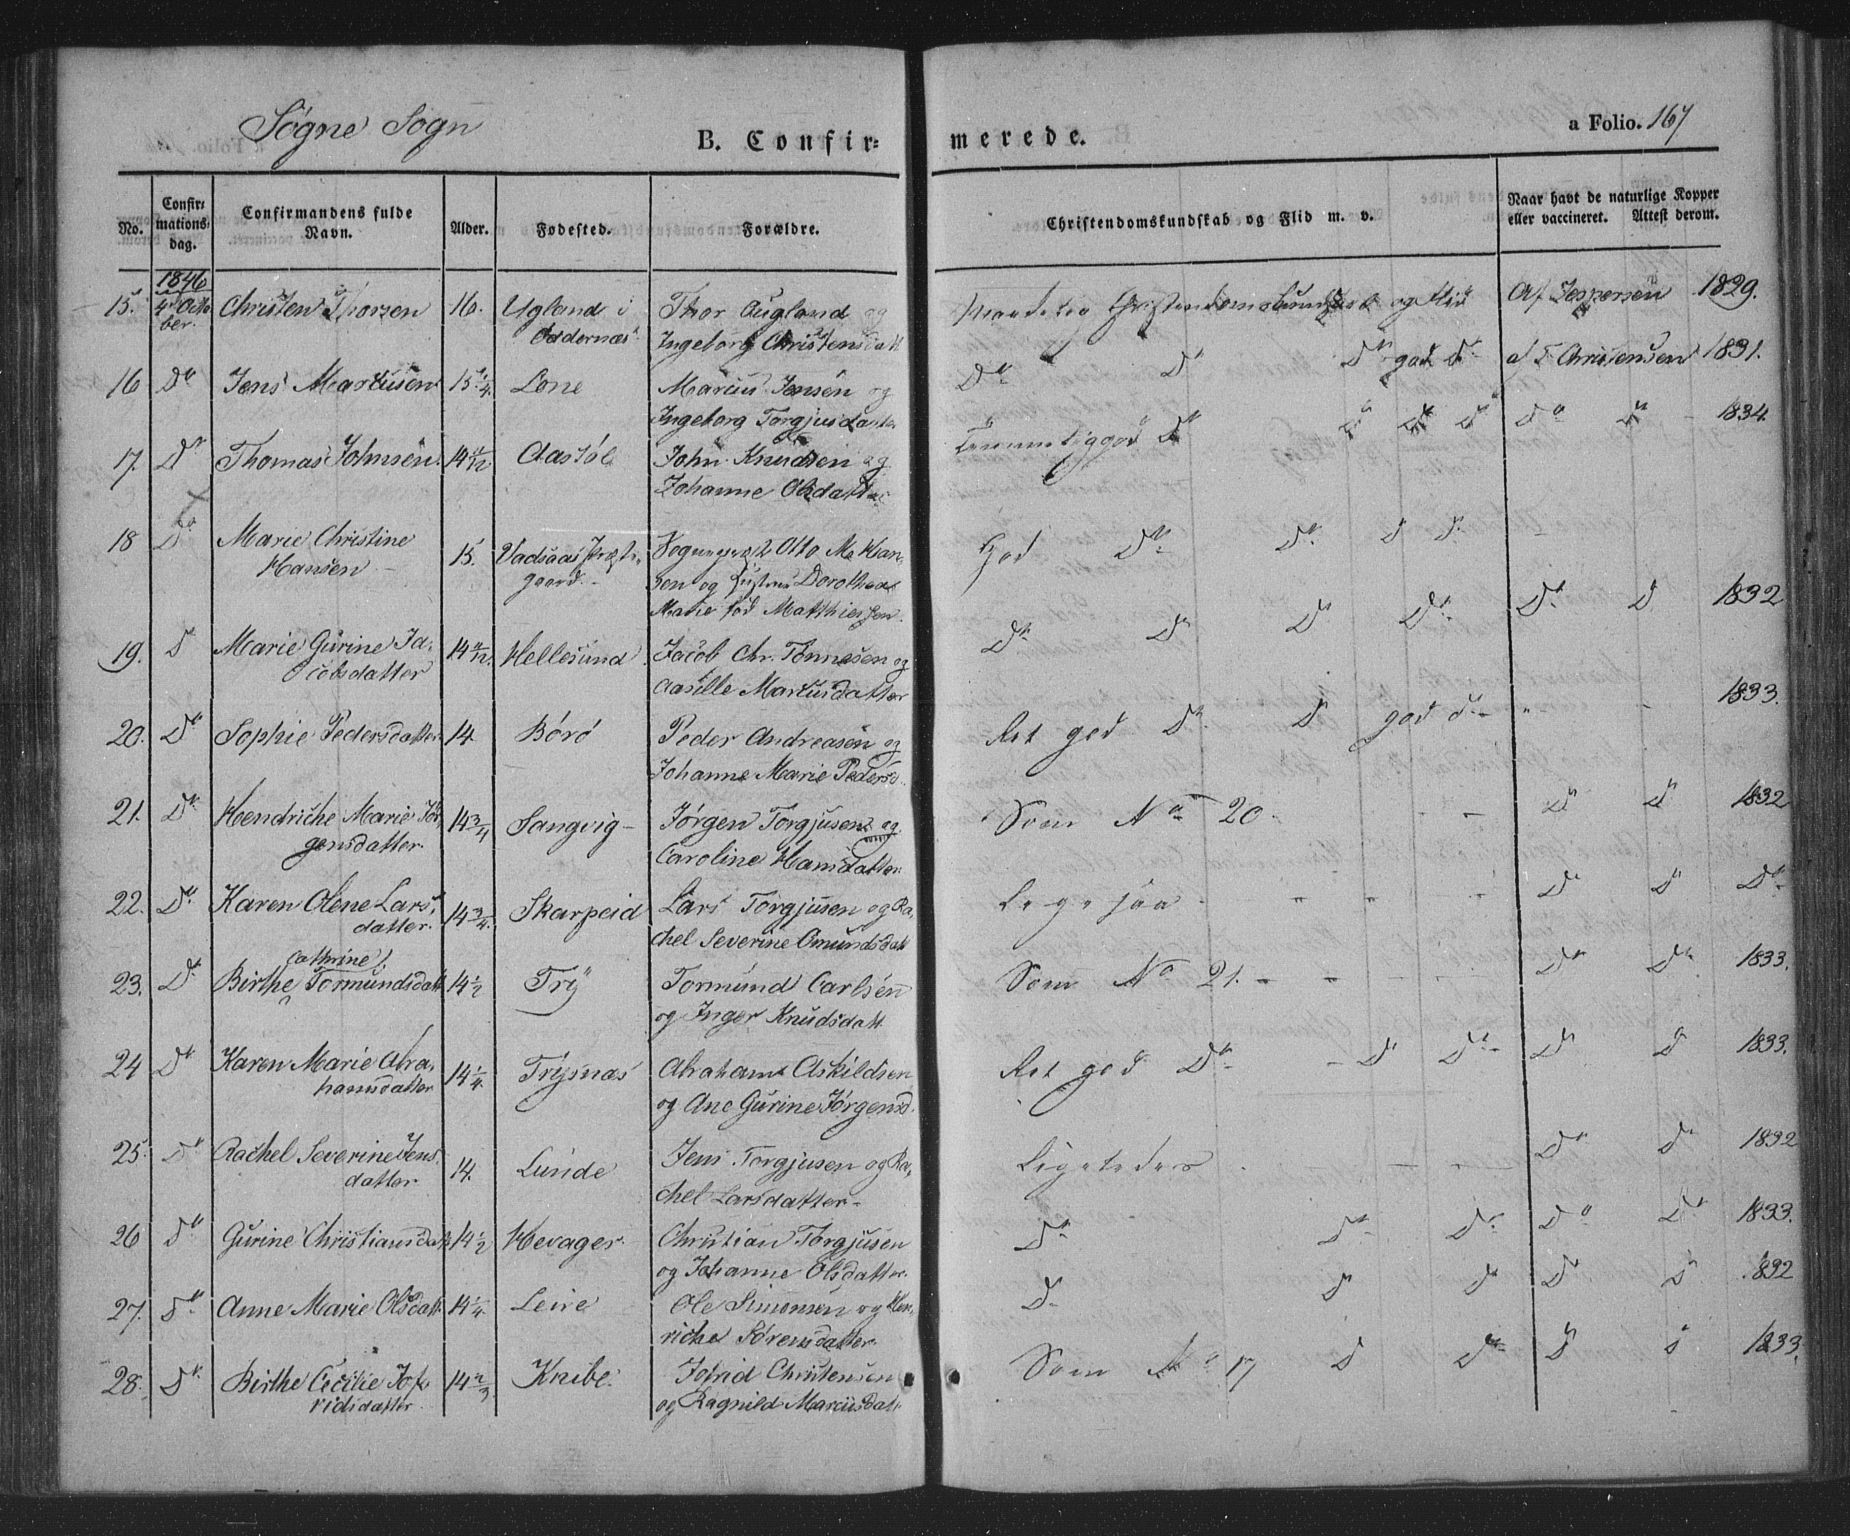 Søgne Sogn
B. Confir=
merede.
a Folio. 167
No.
Confir=
mations-
dag.
Confirmandens fulde
Navn.
Alder.
Fødested.
Forældre.
Christendomskundskab og Flid m. v.
Naar havt de naturlige Kopper
eller vaccineret. Attest derom.
1846
15. 4de Octo
ber. Christen Thorsen 16. Ygland i
Oddernæs Thor Augland og
Ingeborg Christensdatt Christendomskundskab og Flid Af Jespersen 1829.
16 Do Jens Martinsen 15 1/4. Lone Marcus Jensen og
Ingeborg Torgjusdatter Do Do Do god Do af Christensen 1831.
17. Do Thomas Johnsen. 14 11/12 Aastøl John Knudsen og
Johanne Olsdatter Temmelig god Do Do Do Do Do 1834.
18 Do Marie Christine
Hansen 15. Vadsaas Præste
gaard. Sognepræst Otto M. Han-
sen og Hustrue Dorothea
Marie fød Matthiessen. God Do Do Do Do
19. D Marie Gurine Ja-
cobsdatter 14 11/12. Hellesund Jacob Chr. Tønnesen og
Aasille Marcusdatter Do Do Do Do Do D 1832
20. Do Sophie Pedersdatter 14. Børø Peder Andreasen og
Johanne Marie Pedersd. Ret god Do Do god Do 1833.
21. Do Hendriche Marie Jør-
gensdatter. 14 3/4 Sangvig Jørgen Torgjusen og
Caroline Hansdatter Som No 20 Do Do 1832
22. Do Karen Olene Lars-
datter. 14 3/4. Skarpeid Lars Torgjusen og Ra-
chel Severine Omundsdatt Ligesaa Do Do Do
Cathrine
23. Do Birthe Tormundsdatt 14 1/2 Try Tormund Carlsen
og Inger Knudsdatt. Som No 21. Do Do 1833.
24 Do Karen Marie Abra-
hamsdatter 14 1/4. Trysnæs Abraham Askildsen
og Ane Gurine Jørgensd. Ret god Do D Do Do D 1833.
25. Do Rachel Severine Jens
datter 14. Lunde Jens Torgjusen og Ra-
chel Larsdatter Ligeledes Do Do 1832
26 Do Gurine Christiansdatt 14 1/2 Hevager Christian Torgjusen
og Johanne Olsdatter. Do Do Do Do Do 1833.
27. Do Anne Marie Olsdatt. 14 1/4. Leire Ole Simonsen og Hen-
riche Sørensdatter D. D D Do D 1832
28. Do Birthe Cecilie Jof-
ridsdatter 14 2/3 Knibe. Jofrid Christensen
og Ragnild Marcusdatt. Som No 17 D Do D D 1833.